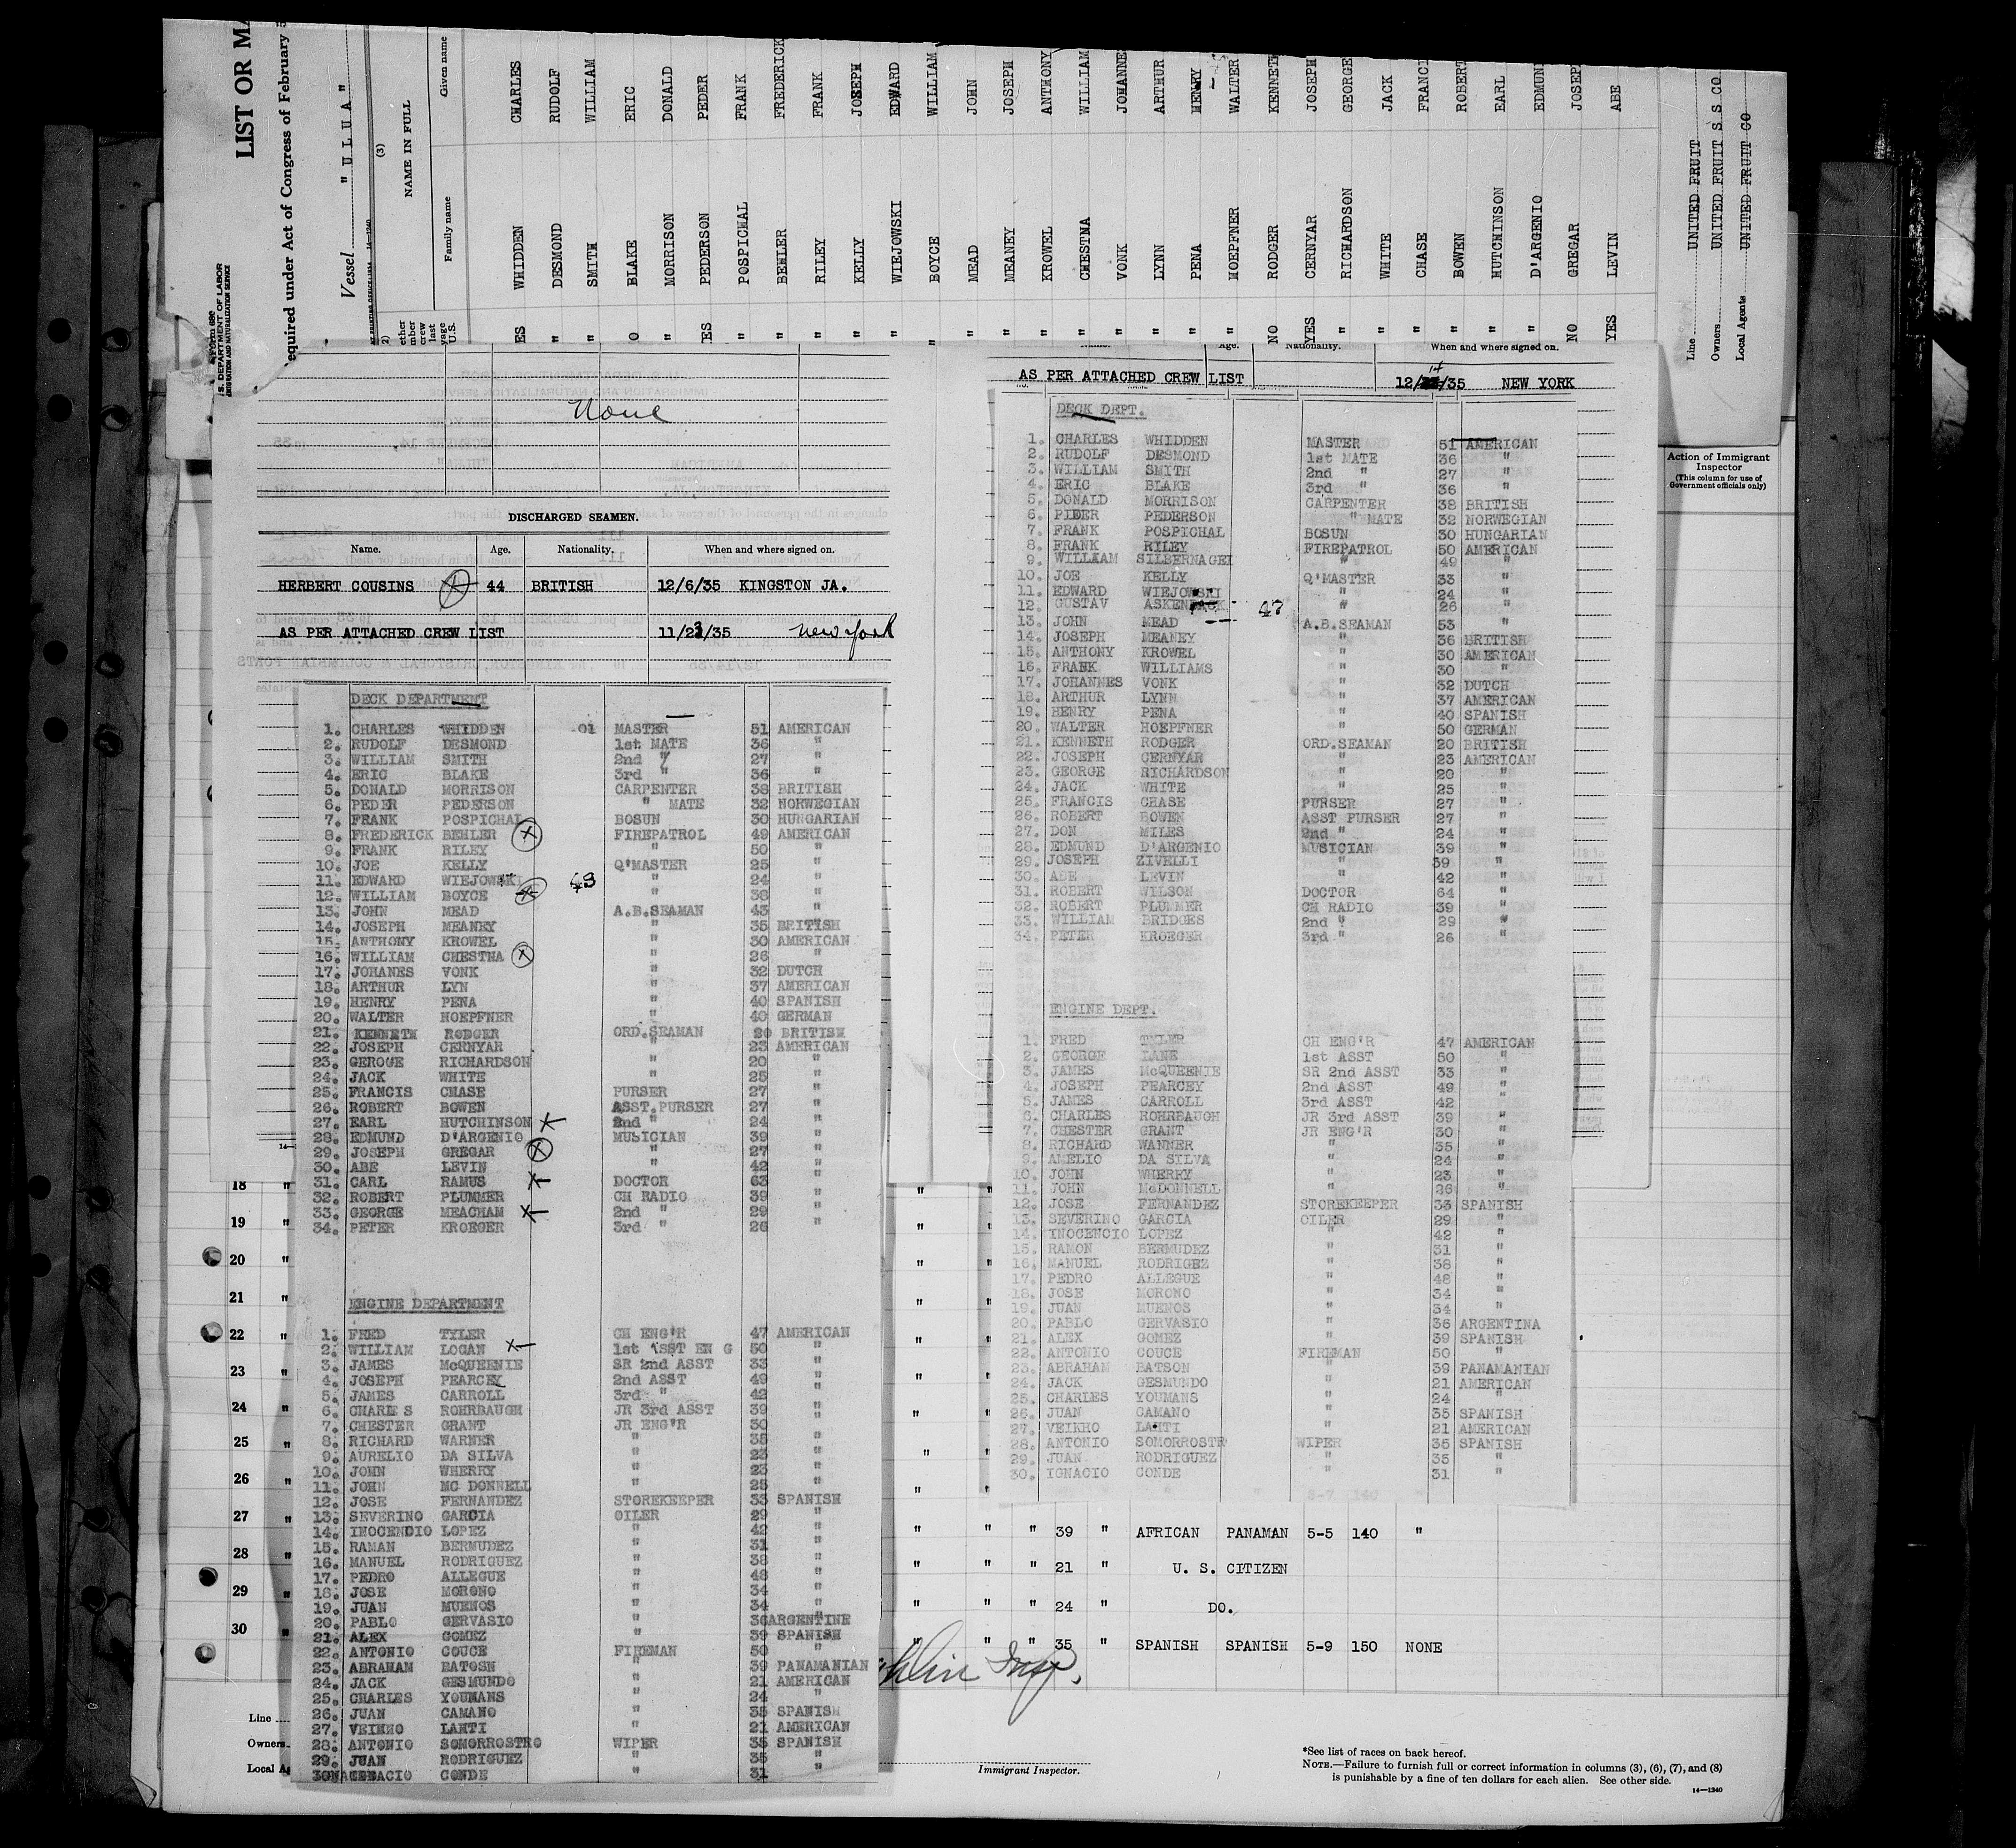 LIST OR MA
Form 680
S. DEPARTMENT OF LABOR
MIGRATION AND NATURALIZATION SERVICE
equired under Act of Congress of February
Vessel " U L U A "
(3)
NAME IN FULL
Family name Given name
ES WHIDDEN CHARLES
" DESMOND RUDOLF
" SMITH WILLIAM
O BLAKE ERIC
" MORRISON DONALD
ES PEDERSON PEDER
" POSPICHAL FRANK
" BEHLER FREDERICK
" RILEY FRANK
" KELLY JOSEPH
" WIEJOWSKI EDWARD
" BOYCE WILLIAM
" MEAD JOHN
" MEANEY JOSEPH
" KROWEL ANTHONY
" CHESTNA WILLIAM
" VONK JOHANNE
" LYNN ARTHUR
" PENA HENRY
" HOEPFNER WALTER
NO RODGER KENNETH
YES CERNYAR JOSEPH
" RICHARDSON GEORGE
" WHITE JACK
" CHASE FRANCI
" BOWEN ROBERT
" HUTCHINSON EARL
" D'ARGENIO EDMUN
NO GREGAR JOSEP
YES LEVIN ABE
Line UNITED FRUIT
Owners UNITED FRUIT S S CO
Local Agents UNITED FRUIT CO
None
DISCHARGED SEAMEN.
Name. Age. Nationality. When and where signed on.
HERBERT COUSINS 44 BRITISH 12/6/35 KINGSTON JA.
AS PER ATTACHED CREW LIST 11/23/35 New York
DECK DEPARTMENT
1. CHARLES WHIDDEN 01 MASTER 51 AMERICAN
2. RUDOLF DESMOND 1st MATE 36 "
3. WILLIAM SMITH 2nd " 27 "
4. ERIC BLAKE 3rd " 36 "
5. DONALD MORRISON CARPENTER 38 BRITISH
6. PEDER PEDERSON " MATE 32 NORWEGIAN
7. FRANK POSPICHAL BOSUN 30 HUNGARIAN
8. FREDERICK BEHLER FIREPATROL 49 AMERICAN
9. FRANK RILEY " 50 "
10. JOE KELLY Q'MASTER 25 "
11. EDWARD WIEJOWSKI 43 " 24 "
12. WILLIAM BOYCE " 38 "
13. JOHN MEAD A.B.SEAMAN 43 "
14. JOSEPH MEANEY " 35 BRITISH
15. ANTHONY KROWEL " 30 AMERICAN
16. WILLIAM CHESTNA " 26 "
17. JOHANES VONK " 32 DUTCH
18. ARTHUR LYN " 37 AMERICAN
19. HENRY PENA " 40 SPANISH
20. WALTER HOEPFNER " 40 GERMAN
21. KENNETH RODGER ORD.SEAMAN 20 BRITISH
22. JOSEPH CERNYAR " 23 AMERICAN
23. GEROGE RICHARDSON " 20 "
24. JACK WHITE " 25 "
25. FRANCIS CHASE PURSER 27 "
26. ROBERT BOWEN ASST.PURSER 27 "
27. EARL HUTCHINSON 2nd " 24 "
28. EDMUND D'ARGENIO MUSICIAN 39 "
29. JOSEPH GREGAR " 27 "
30. ABE LEVIN " 42 "
31. CARL RAMUS DOCTOR 63 "
32. ROBERT PLUMMER CH RADIO 39 "
33. GEORGE MEACHAM 2nd " 29 "
34. PETER KROEGER 3rd " 26 "
ENGINE DEPARTMENT
1. FRED TYLER CH ENG'R 47 AMERICAN
2. WILLIAM LOGAN 1st ASST EN G 50 "
3. JAMES McQUEENIE SR 2nd ASST 33 "
4. JOSEPH PEARCEY 2nd ASST 49 "
5. JAMES CARROLL 3rd " 42 "
6. CHARLE S ROHRBAUGH JR 3rd ASST 39 "
7. CHESTER GRANT JR ENG'R 30 "
8. RICHARD WARNER " 35 "
9. AURELIO DA SILVA " 23 "
10. JOHN WHERRY " 23 "
11. JOHN MC DONNELL " 25 "
12. JOSE FERNANDEZ STOREKEEPER 33 SPANISH
13. SEVERINO GARCIA OILER 29 "
14. INOCENCIO LOPEZ " 42 "
15. RAMAN BERMUDEZ " 31 "
16. MANUEL RODRIGUEZ " 38 "
17. PEDRO ALLEGUE " 48 "
18. JOSE MORONO " 34 "
19. JUAN MUENOS " 34 "
20. PABLO GERVASIO " 36 ARGENTINE
21. ALEX GOMEZ " 39 SPANISH
22. ANTONIO COUCE FIREMAN 50 "
23. ABRAHAM BATOSN " 39 PANAMANIAN
24. JACK GESMUNDO " 21 AMERICAN
25. CHARLES YOUMANS " 24 "
26. JUAN CAMANO " 35 SPANISH
27. VEIKHO LAHTI " 21 AMERICAN
28. ANTONIO SOMORROSTRO WIPER 35 SPANISH
29. JUAN RODRIGUEZ " 35 "
CONDE " 31 "
Name. Age. Nationality. When and where signed on.
AS PER ATTACHED CREW LIST 12/14/35 NEW YORK
DECK DEPT.
1. CHARLES WHIDDEN MASTER 51 AMERICAN
2. RUDOLF DESMOND 1st MATE 36 "
3. WILLIAM SMITH 2nd " 27 "
4. ERIC BLAKE 3rd " 36 "
5. DONALD MORRISON CARPENTER 38 BRITISH
6. PIDER PEDERSON " MATE 32 NORWEGIAN
7. FRANK POSPICHAL BOSUN 30 HUNGARIAN
8. FRANK RILEY FIREPATROL 50 AMERICAN
9. WILLIAM SILBERNAGEL " 49 "
10. JOE KELLY Q'MASTER 33 "
11. EDWARD WIEJOWSKI " 24 "
12. GUSTAV ASKENBACK 47 " 26 "
13. JOHN MEAD A.B.SEAMAN 53 "
14. JOSEPH MEANEY " 36 BRITISH
15. ANTHONY KROWEL " 30 AMERICAN
16. FRANK WILLIAMS " 30 "
17. JOHANNES VONK " 32 DUTCH
18. ARTHUR LYNN " 37 AMERICAN
19. HENRY PENA " 40 SPANISH
20. WALTER HOEPFNER " 50 GERMAN
21. KENNETH RODGER ORD.SEAMAN 20 BRITISH
22. JOSEPH CERNYAR " 23 AMERICAN
23. GEORGE RICHARDSON " 20 "
24. JACK WHITE " 25 "
25. FRANCIS CHASE PURSER 27 "
26. ROBERT BOWEN ASST PURSER 27 "
27. DON MILES 2nd " 24 "
28. EDMUND D'ARGENIO MUSICIAN 39 "
29. JOSEPH ZIVELLI " 59 "
30. ABE LEVIN " 42 "
31. ROBERT WILSON DOCTOR 64 "
32. ROBERT PLUMMER CH RADIO 39 "
33. WILLIAM BRIDGES 2nd " 29 "
34. PETER KROEGER 3rd " 26 "
ENGINE DEPT.
1. FRED TYLER CH ENG'R 47 AMERICAN
2. GEORGE LANE 1st ASST 50 "
3. JAMES McQUEENIE SR 2nd ASST 33 "
4. JOSEPH PEARCEY 2nd ASST 49 "
5. JAMES CARROLL 3rd ASST 42 "
6. CHARLES ROHRBAUGH JR 3rd ASST 39 "
7. CHESTER GRANT JR ENG'R 30 "
8. RICHARD WANNER " 35 "
9. AMELIO DA SILVA " 24 "
10. JOHN WHERRY " 23 "
11. JOHN McDONNELL " 26 "
12. JOSE FERNANDEZ STOREKEEPER 33 SPANISH
13. SEVERINO GARCIA OILER 29 "
14. INOCENCIO LOPEZ " 42 "
15. RAMON BERMUDEZ " 31 "
16. MANUEL RODRIGEZ " 38 "
17. PEDRO ALLEGUE " 48 "
18. JOSE MORONO " 34 "
19. JUAN MUENOS " 34 "
20. PABLO GERVASIO " 36 ARGENTINA
21. ALEX GOMEZ " 39 SPANISH
22. ANTONIO COUCE FIREMAN 50 "
23. ABRAHAM BATSON " 39 PANAMANIAN
24. JACK GESMUNDO " 21 AMERICAN
25. CHARLES YOUMANS " 24 "
26. JUAN CAMANO " 35 SPANISH
27. VEIKHO LAHTI " 21 AMERICAN
28. ANTONIO SOMORROSTR WIPER 35 SPANISH
29. JUAN RODRIGUEZ " 35 "
30. IGNACIO CONDE " 31 "
Action of Immigrant
Inspector
(This column for use of
Government officials only)
18 "
19 "
20 "
21 "
22 "
23 "
24 "
25 "
26 "
27 " " " " 39 " AFRICAN PANAMAN 5-5 140 "
28 " " " " 21 " U. S. CITIZEN
29 " " " " 24 " DO.
30 " " " " 35 " SPANISH SPANISH 5-9 150 NONE
Insp.
Line
Owners
Local Ag
Immigrant Inspector.
*See list of races on back hereof.
NOTE.—Failure to furnish full or correct information in columns (3), (6), (7), and (8)
is punishable by a fine of ten dollars for each alien. See other side.
14—1240